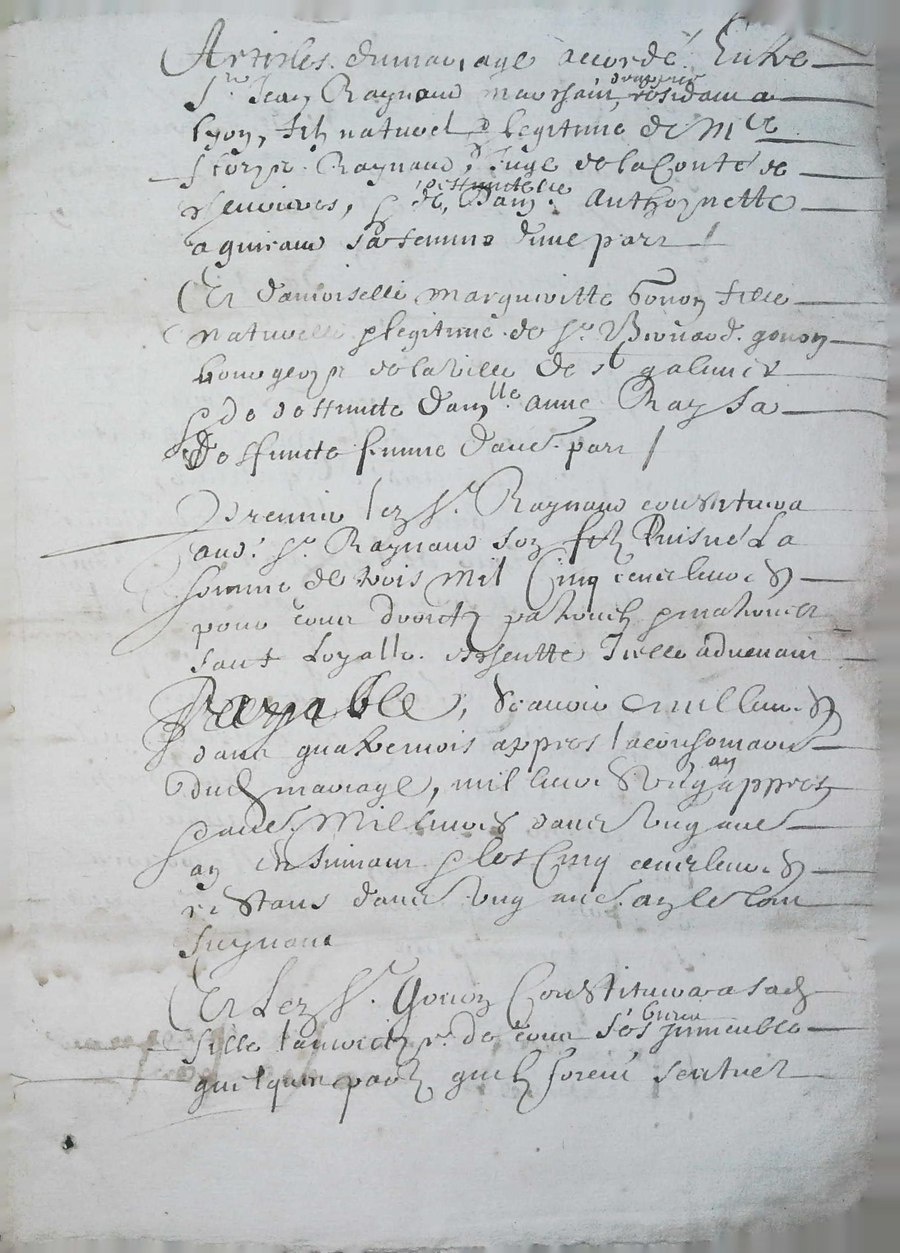 Articles du mariage accordé Entre
Sr Jean Raynaud marchand drappier residant a
Lyon, filz naturel & legitime de Mre
Raynaud, Juge de la Conté de
, & de deffuncte Dam.lle Anthoynette
aguiraud sa femme d'une part /
Et damoiselle margueritte gonon fille
naturelle & legitime de Sr gonon
bourgeoys de la ville de St galmier
& de deffuncte damlle anne Ray sa
deffuncte femme d'autre part /
Premier ledz Sr. Raynaud constituera
aud. Sr. Raynaud son filz Puisné La
somme de trois mil Cinq centz livres
pour tous droictz paternelz & maternelz
sauf Loyalle escheutte Icelle advenant
Payable, Scavoir mil livres
dans quatre mois appres la consommation
dud mariage, mil livres ung an appres
& autres Mil livres dans ung autre
an Ensuivant & les Cinq centz livres
restans dans ung autre an le tout
suyvant
Et Ledz Sr. Gonon Constituera a sad
fille de tous ses biens immeubles
quelque part quilz soient scituez